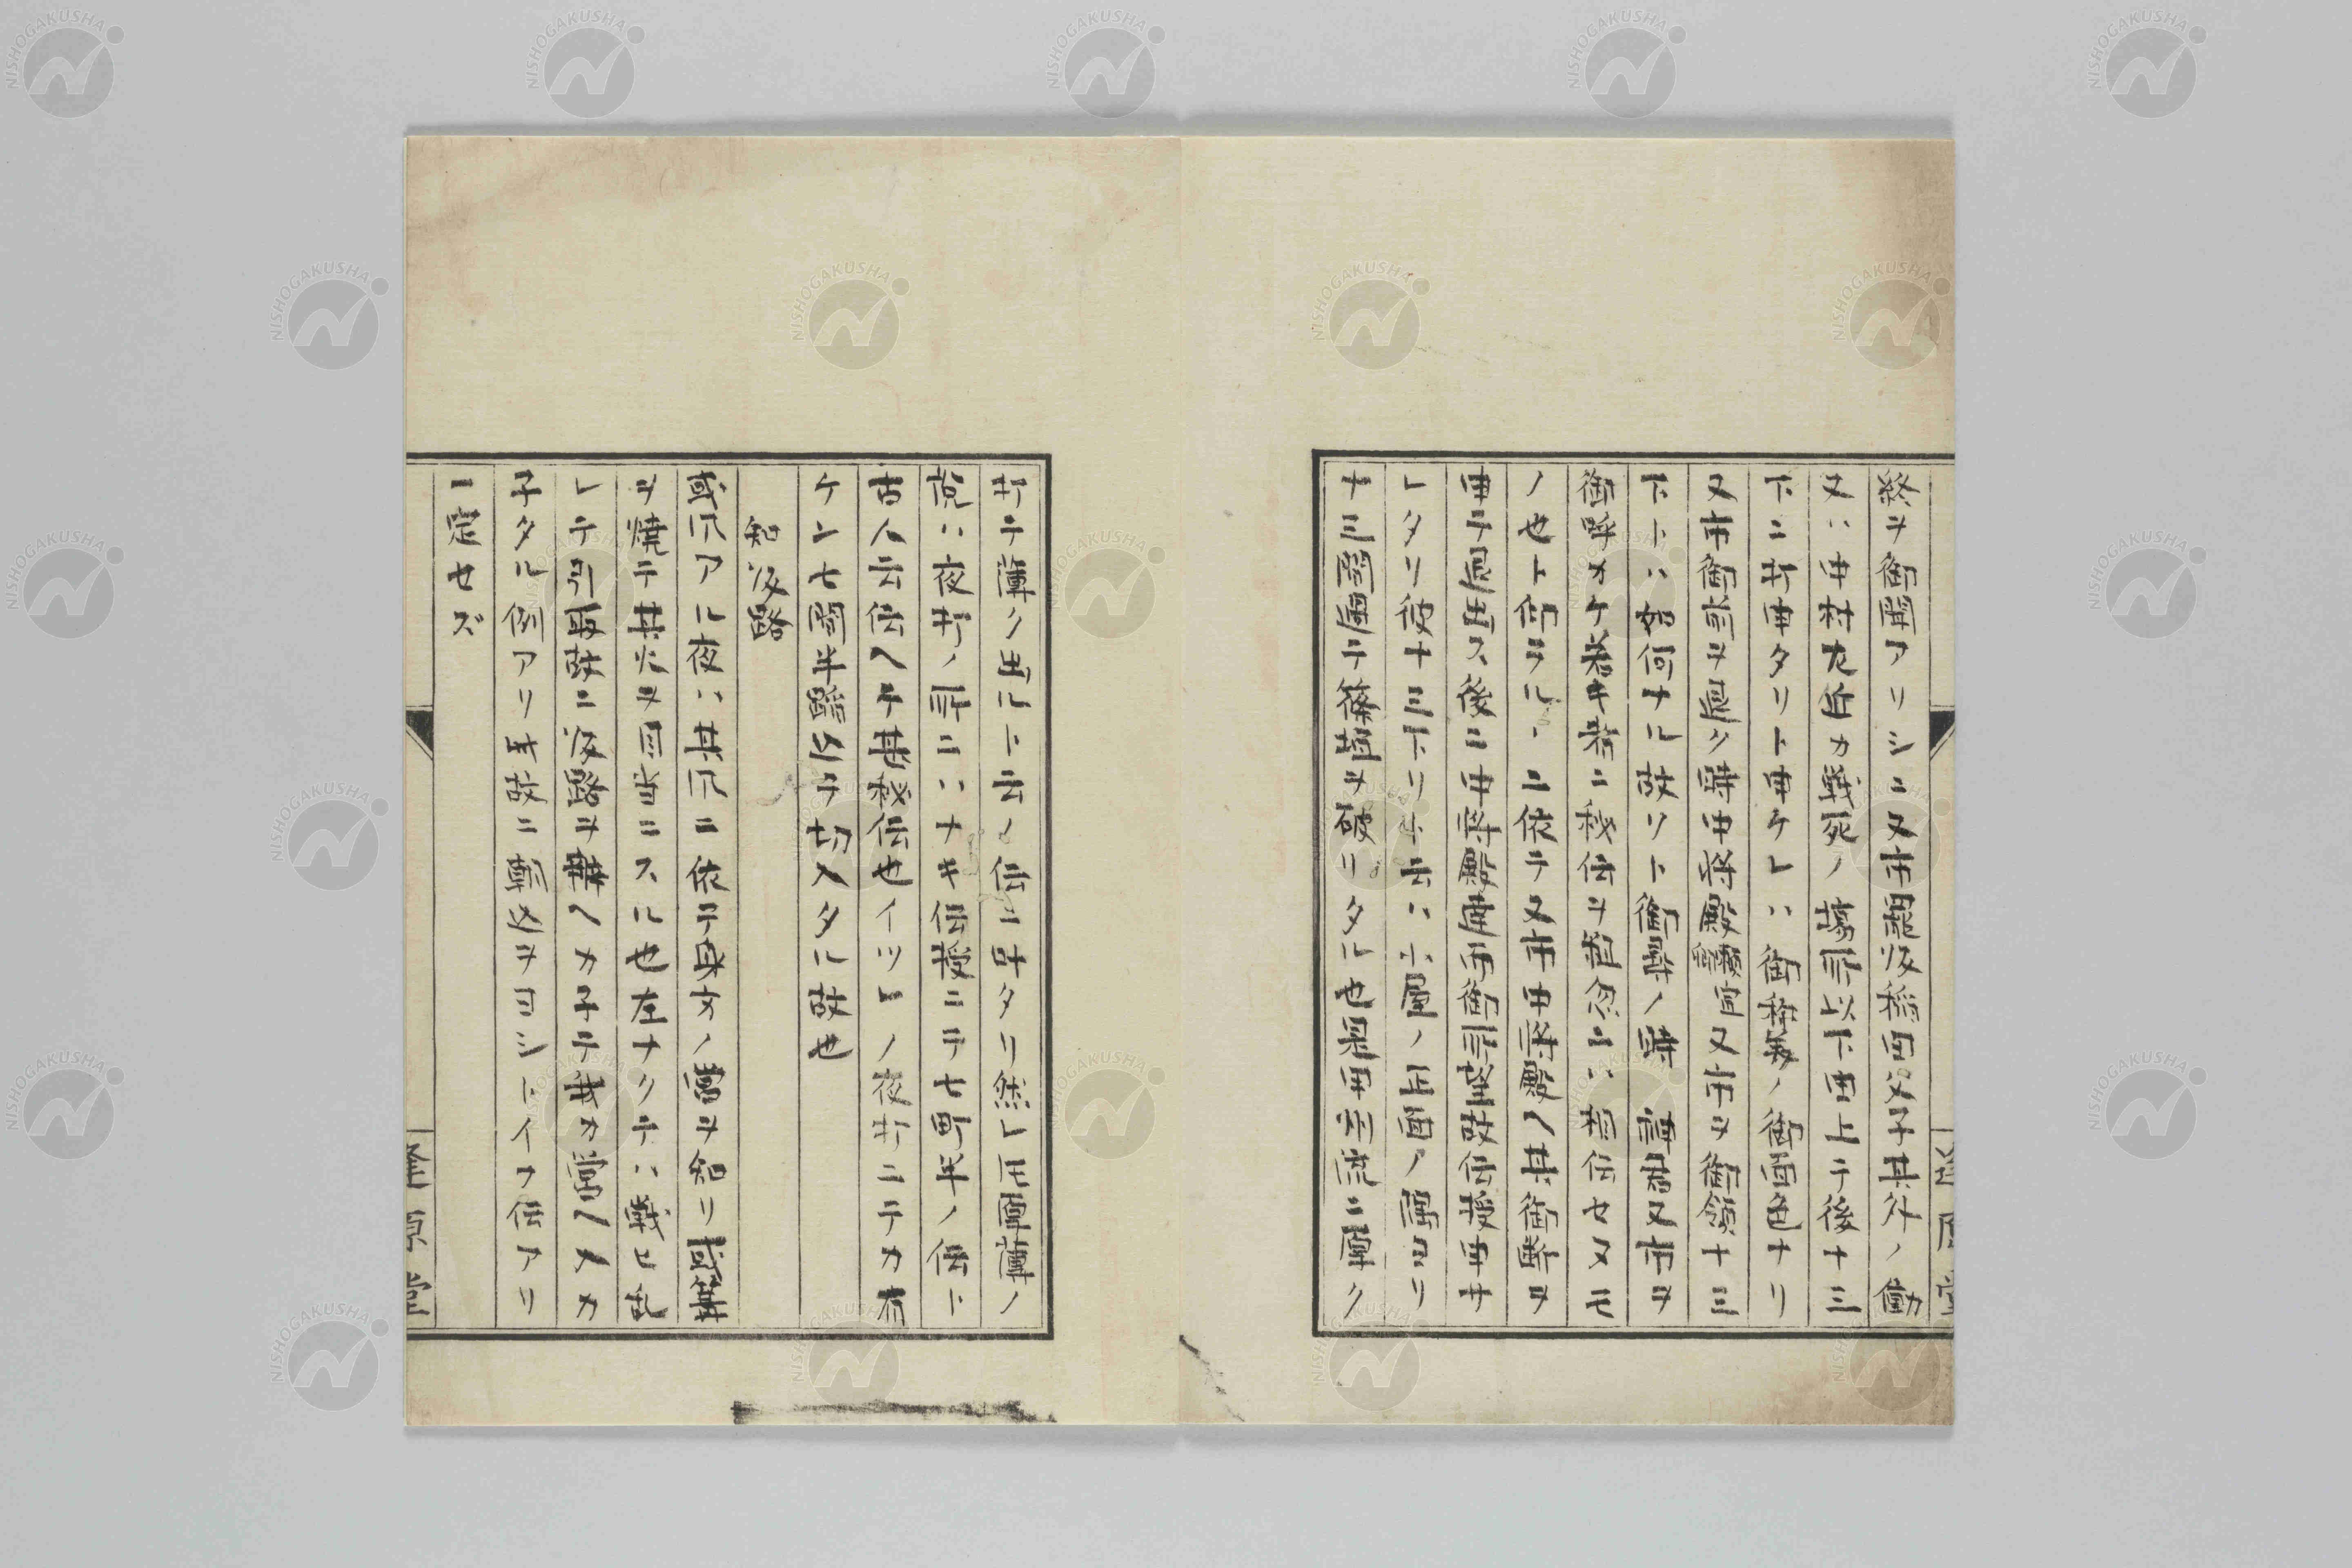 終ヲ御聞アリシニ又市罷帰稲田父子其外ノ働
又ハ中村右近カ戦死ノ場所以下申上テ後十三
下ニ打申タリト申ケレハ御称美ノ御面色ナリ
又市御前ヲ退ク時中将殿 宣又市ヲ御領十三
下トハ如何ナル故ソト御尋ノ時 君又市ヲ
御呼カケ若キ者ニ秘伝ヲ粗忽ニハ相伝セヌモ
ノ也ト仰ラル、ニ依テ又市中将殿ヘ其御断ヲ
申テ退出ス後ニ中将殿達而御所望故伝授申サ
レタリ彼十三下リト云ハ小屋ノ正面ノ隅ヨリ
十三間置テ篠垣ヲ破リタル也
打テ薄ノ出ルト云ノ伝ニ叶タリ然レ𪜈軍薄ノ
説ハ夜打ノ所ニハナキ伝授ニテ七町半ノ伝ト
古人云伝ヘテ甚秘伝也イツレノ夜打ニテカ有
ケン七間半 テ切入タル故也
知仮路
或爪アル夜ハ其爪ニ依テ身方ノ営ヲ知リ或篝
ヲ焼テ其火ヲ目当ニスル也左ナクテハ戦ヒ乱
レテ引取故ニ仮路ヲ ヘカ子テ我カ営ヘ入カ
子タル例アリ此故ニ 込ヲヨシトイナ伝アリ
一定セズ